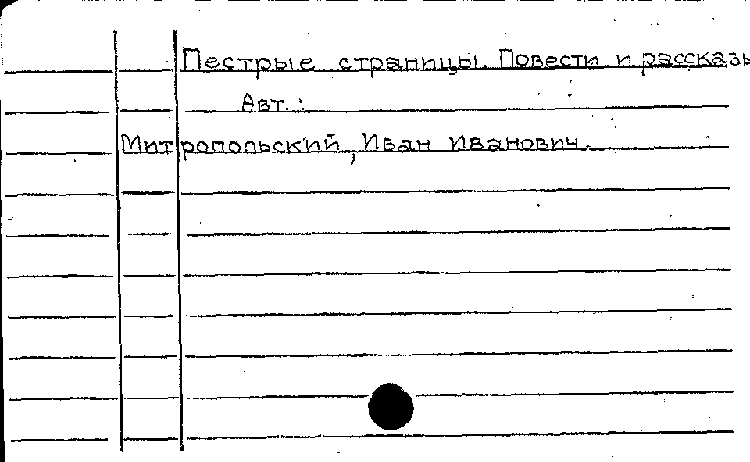 Пестрые страницы. Повести и рассказы
Авт.:
Митропольский, Иван Иванович.